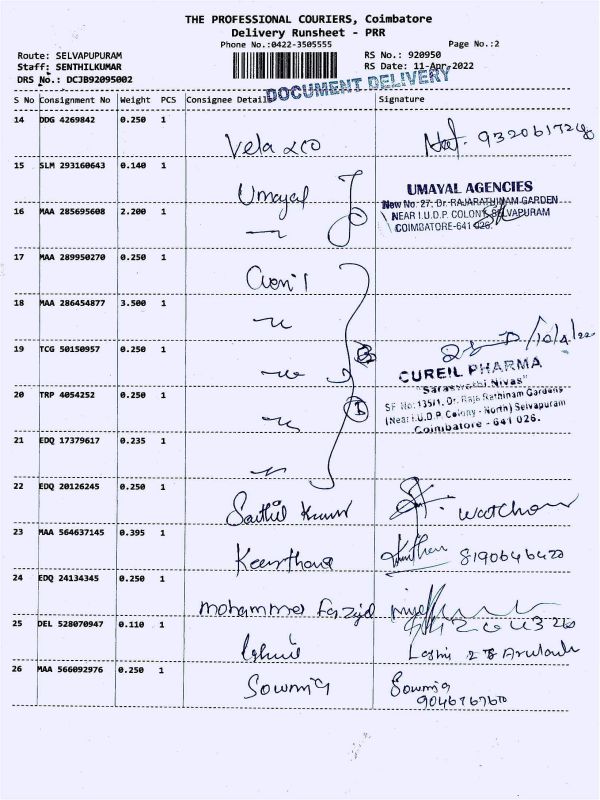 THE PROFESSIONAL COURIERS, Coimbatore
Delivery Runsheet - PRR
Phone No.:0422-3505555
Page No.:2
Route: SELVAPUPURAM
RS No.: 920950
Staff: SENTHILKUMAR
RS Date: 11-Apr-2022
DRS No.: DCJB92095002
DOCUMENT DELIVERY
S No Consignment No Weight PCS Consignee Details Signature
14 DDG 4269842 0.250 1
Vela &co 9320617248
15 SLM 293160643 0.140 1
Umayal
UMAYAL AGENCIES
New No. 27, Dr. RAJARATHINAM GARDEN
16 MAA 285695608 2.200 1
NEAR I.U.D.P COLONY, SELVAPURAM
COIMBATORE-641 026.
17 MAA 289950270 0.250 1
18 MAA 286454877 3.500 1
19 TCG 50150957 0.250 1
CUREIL PHARMA
"Saraswathi Nivas"
20 TRP 4054252 0.250 1
SF No: 135/1, Dr. Raja Rathinam Gardens
(Near I.U.D.P Colony - North) Selvapuram
Coimbatore - 641 026.
21 EDQ 17379617 0.235 1
22 EDQ 20126245 0.250 1
23 MAA 564637145 0.395 1
Keerthana
24 EDQ 24134345 0.250 1
mohammed
25 DEL 528070947 0.110 1
26 MAA 566092976 0.250 1
Sowmia Sowmia